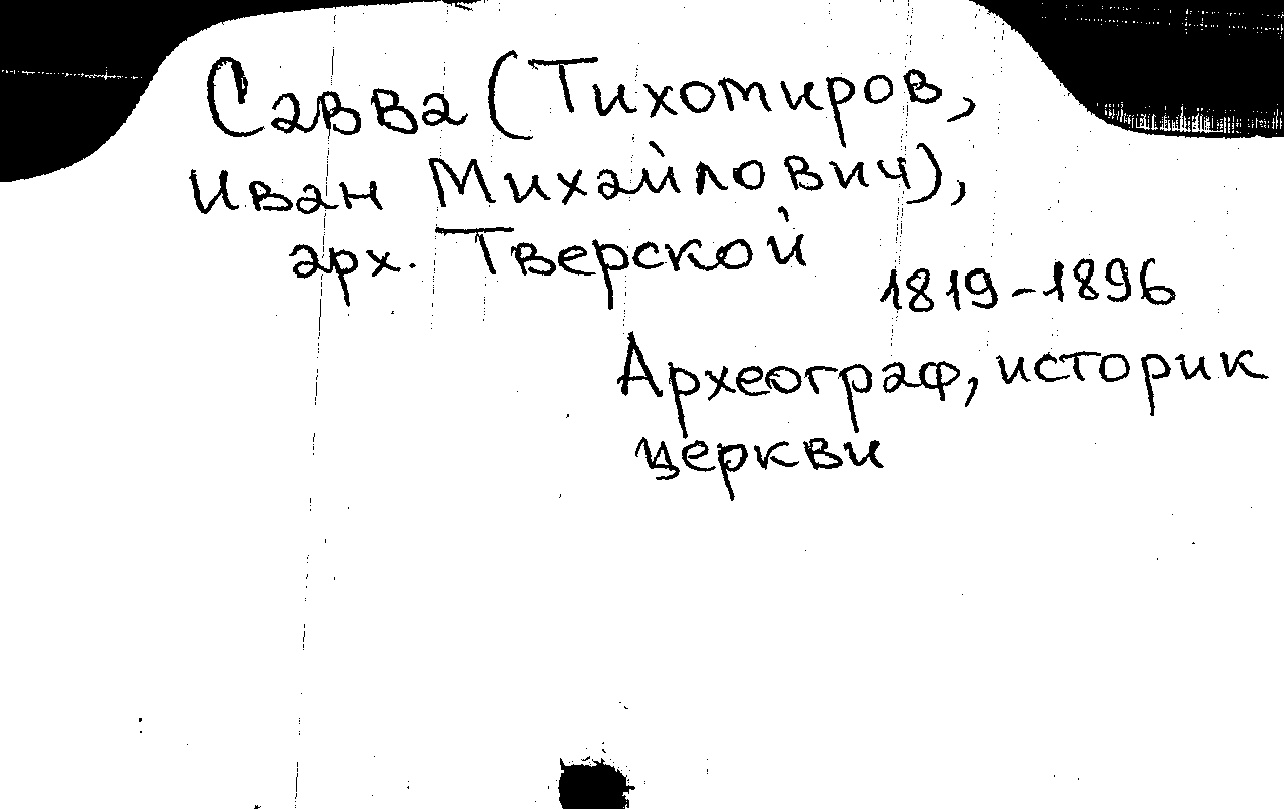 Савва (Тихомиров,
Иван Михайлович),
арх. Тверской
1819-1896
Археограф, историк
церкви